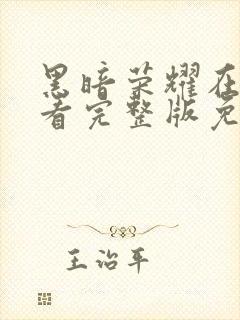 黑暗荣耀在
看完整版免
王治平